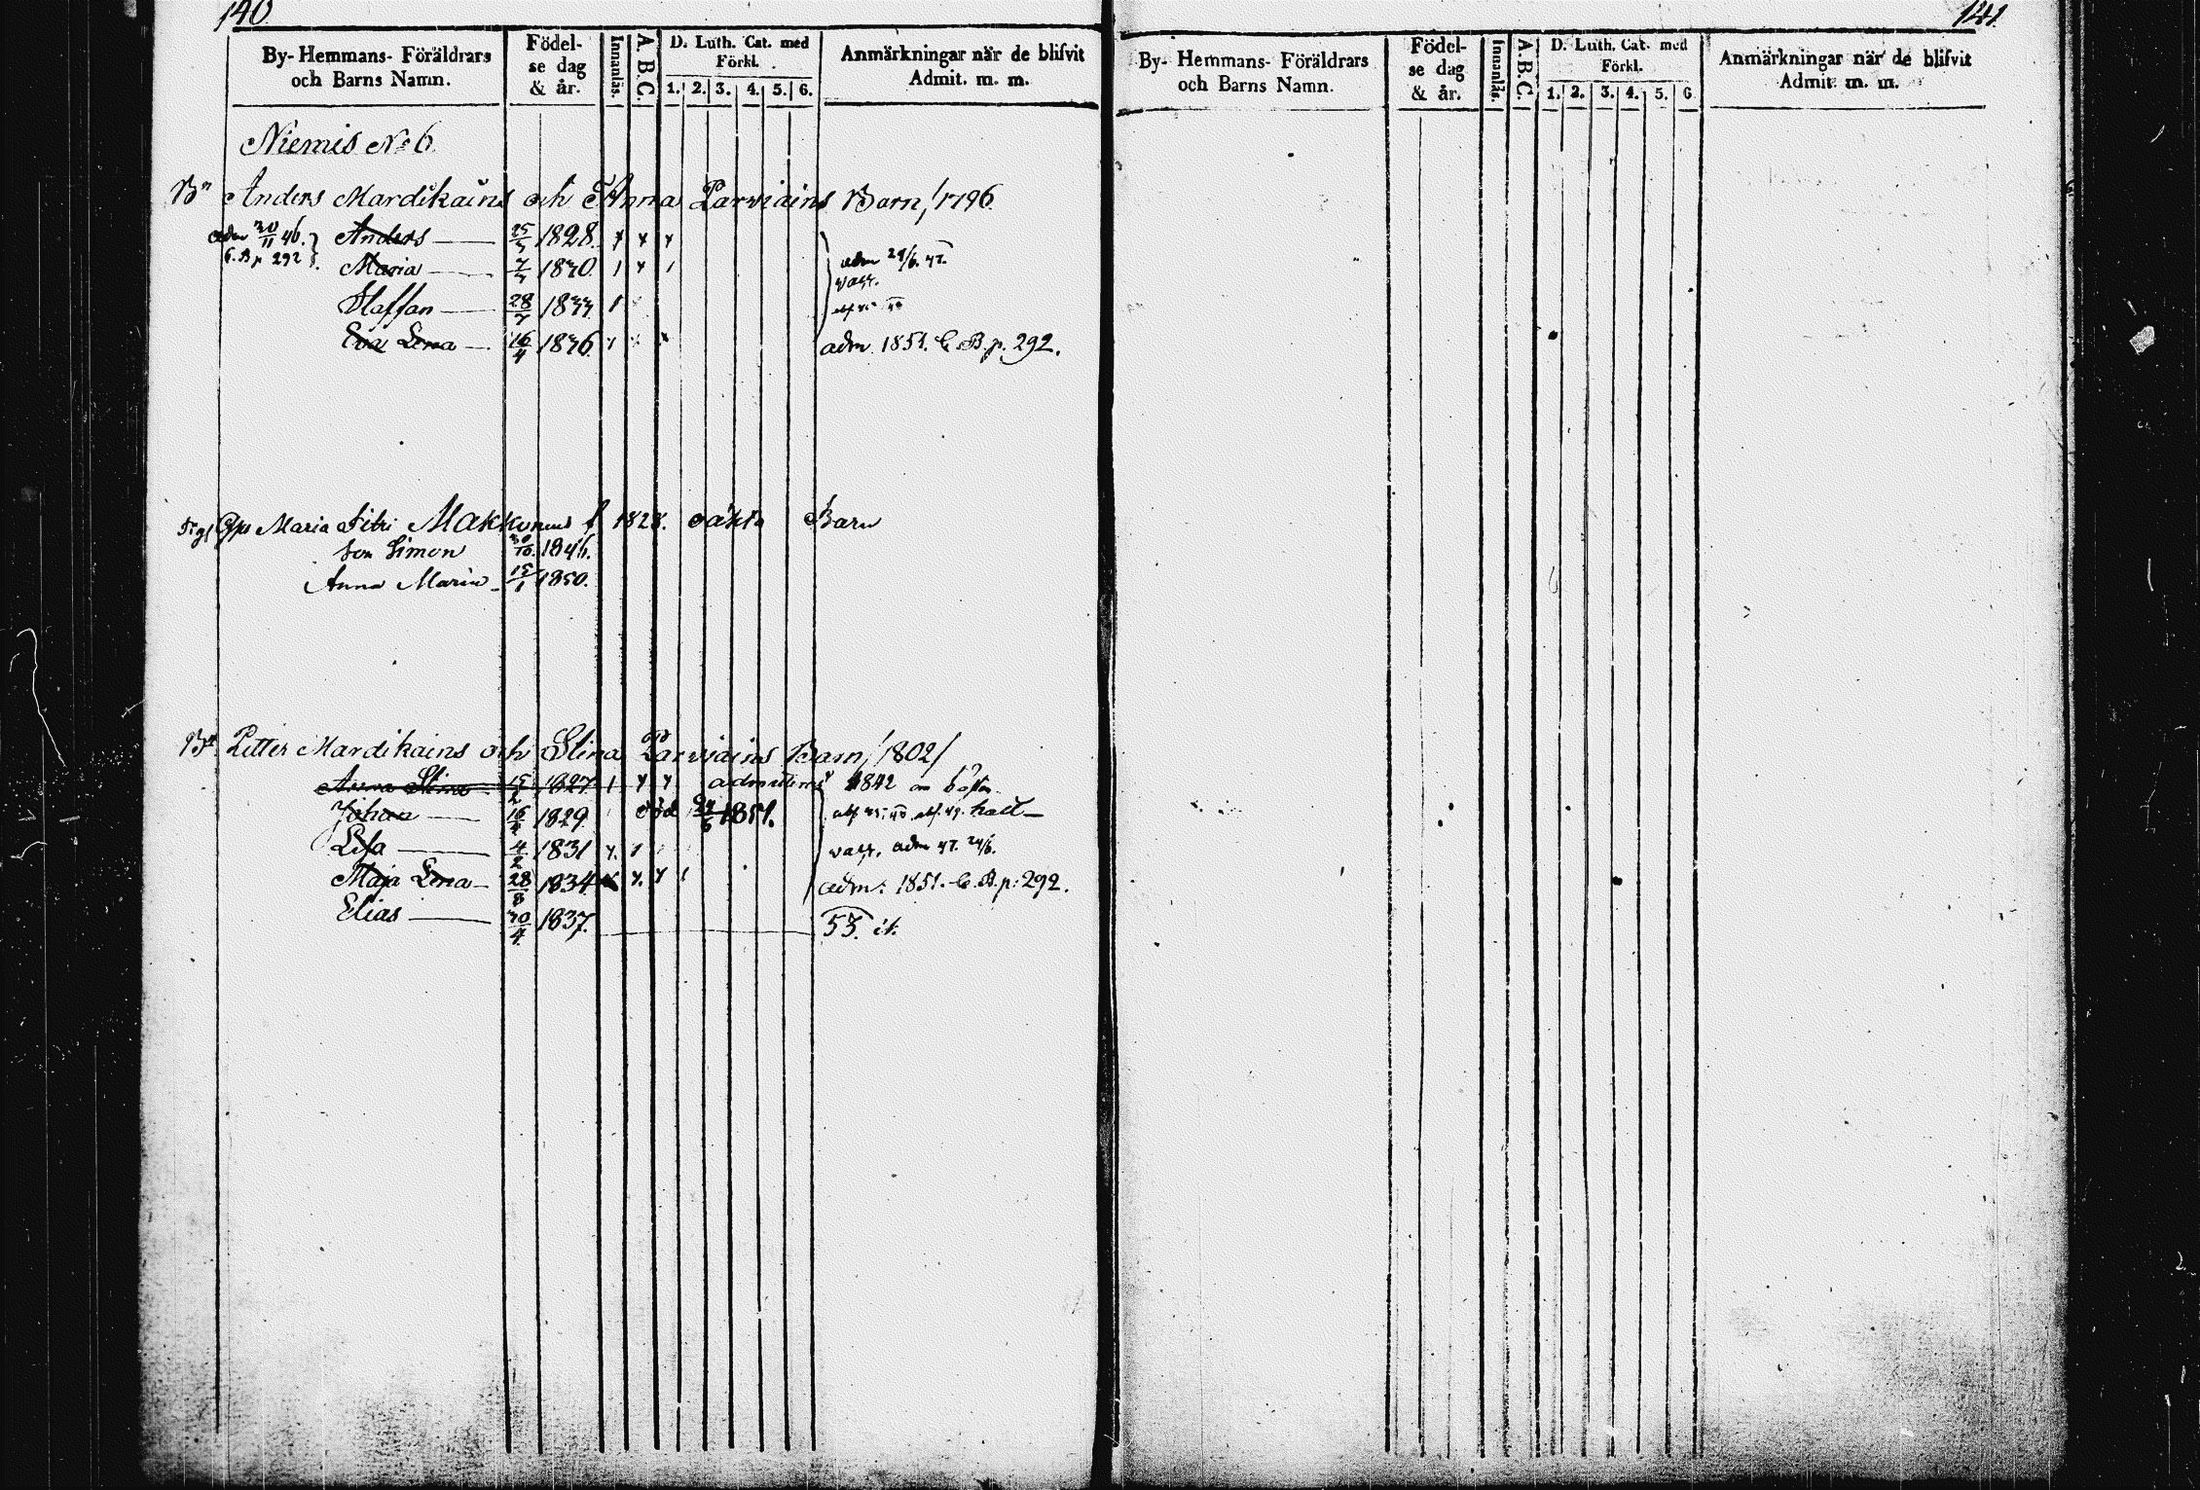 140.
By- Hemmans- Föräldrars och Barns Namn.
Födel- se dag & år.
Innanläs.
A. B. C.
D. Luth. Cat. med Förkl.
1. 2. 3. 4. 5. 6.
Anmärkningar när de blifvit Admit. m. m.
Niemis No 6.
Bn Anders Mardikains och Anna Parviains Barn, 1796
adm 30/11 46. C.B p 292
Anders 25/5 1828.
Maria 1830. adm 24/6. 47.
Staffan 28/7 1833
Eva Lena 16/4 1836. adm. 1851. C.B.p. 292.
Maria Makkonens f 1828. oäkta Barn
son Simon 30/10. 1846.
Anna Maria 15/1 1850.
Br Petter Mardikains och Stina Parviains Barn, /1802/
Anna Stina 15/2 1827 admitteras 1842
Johan 16/4 1829. död 1851.
Lisa 4/2 1831 adm 47. 24/6.
Maja Lena 28/8 1834 adm: 1851. C.B.p: 292.
Elias 30/4 1837. 53. it.
141.
By- Hemmans- Föräldrars och Barns Namn.
Födel- se dag & år.
Innanläs.
A. B. C.
D. Luth. Cat. med Förkl.
1. 2. 3. 4. 5. 6
Anmärkningar när de blifvit Admit. m. m.